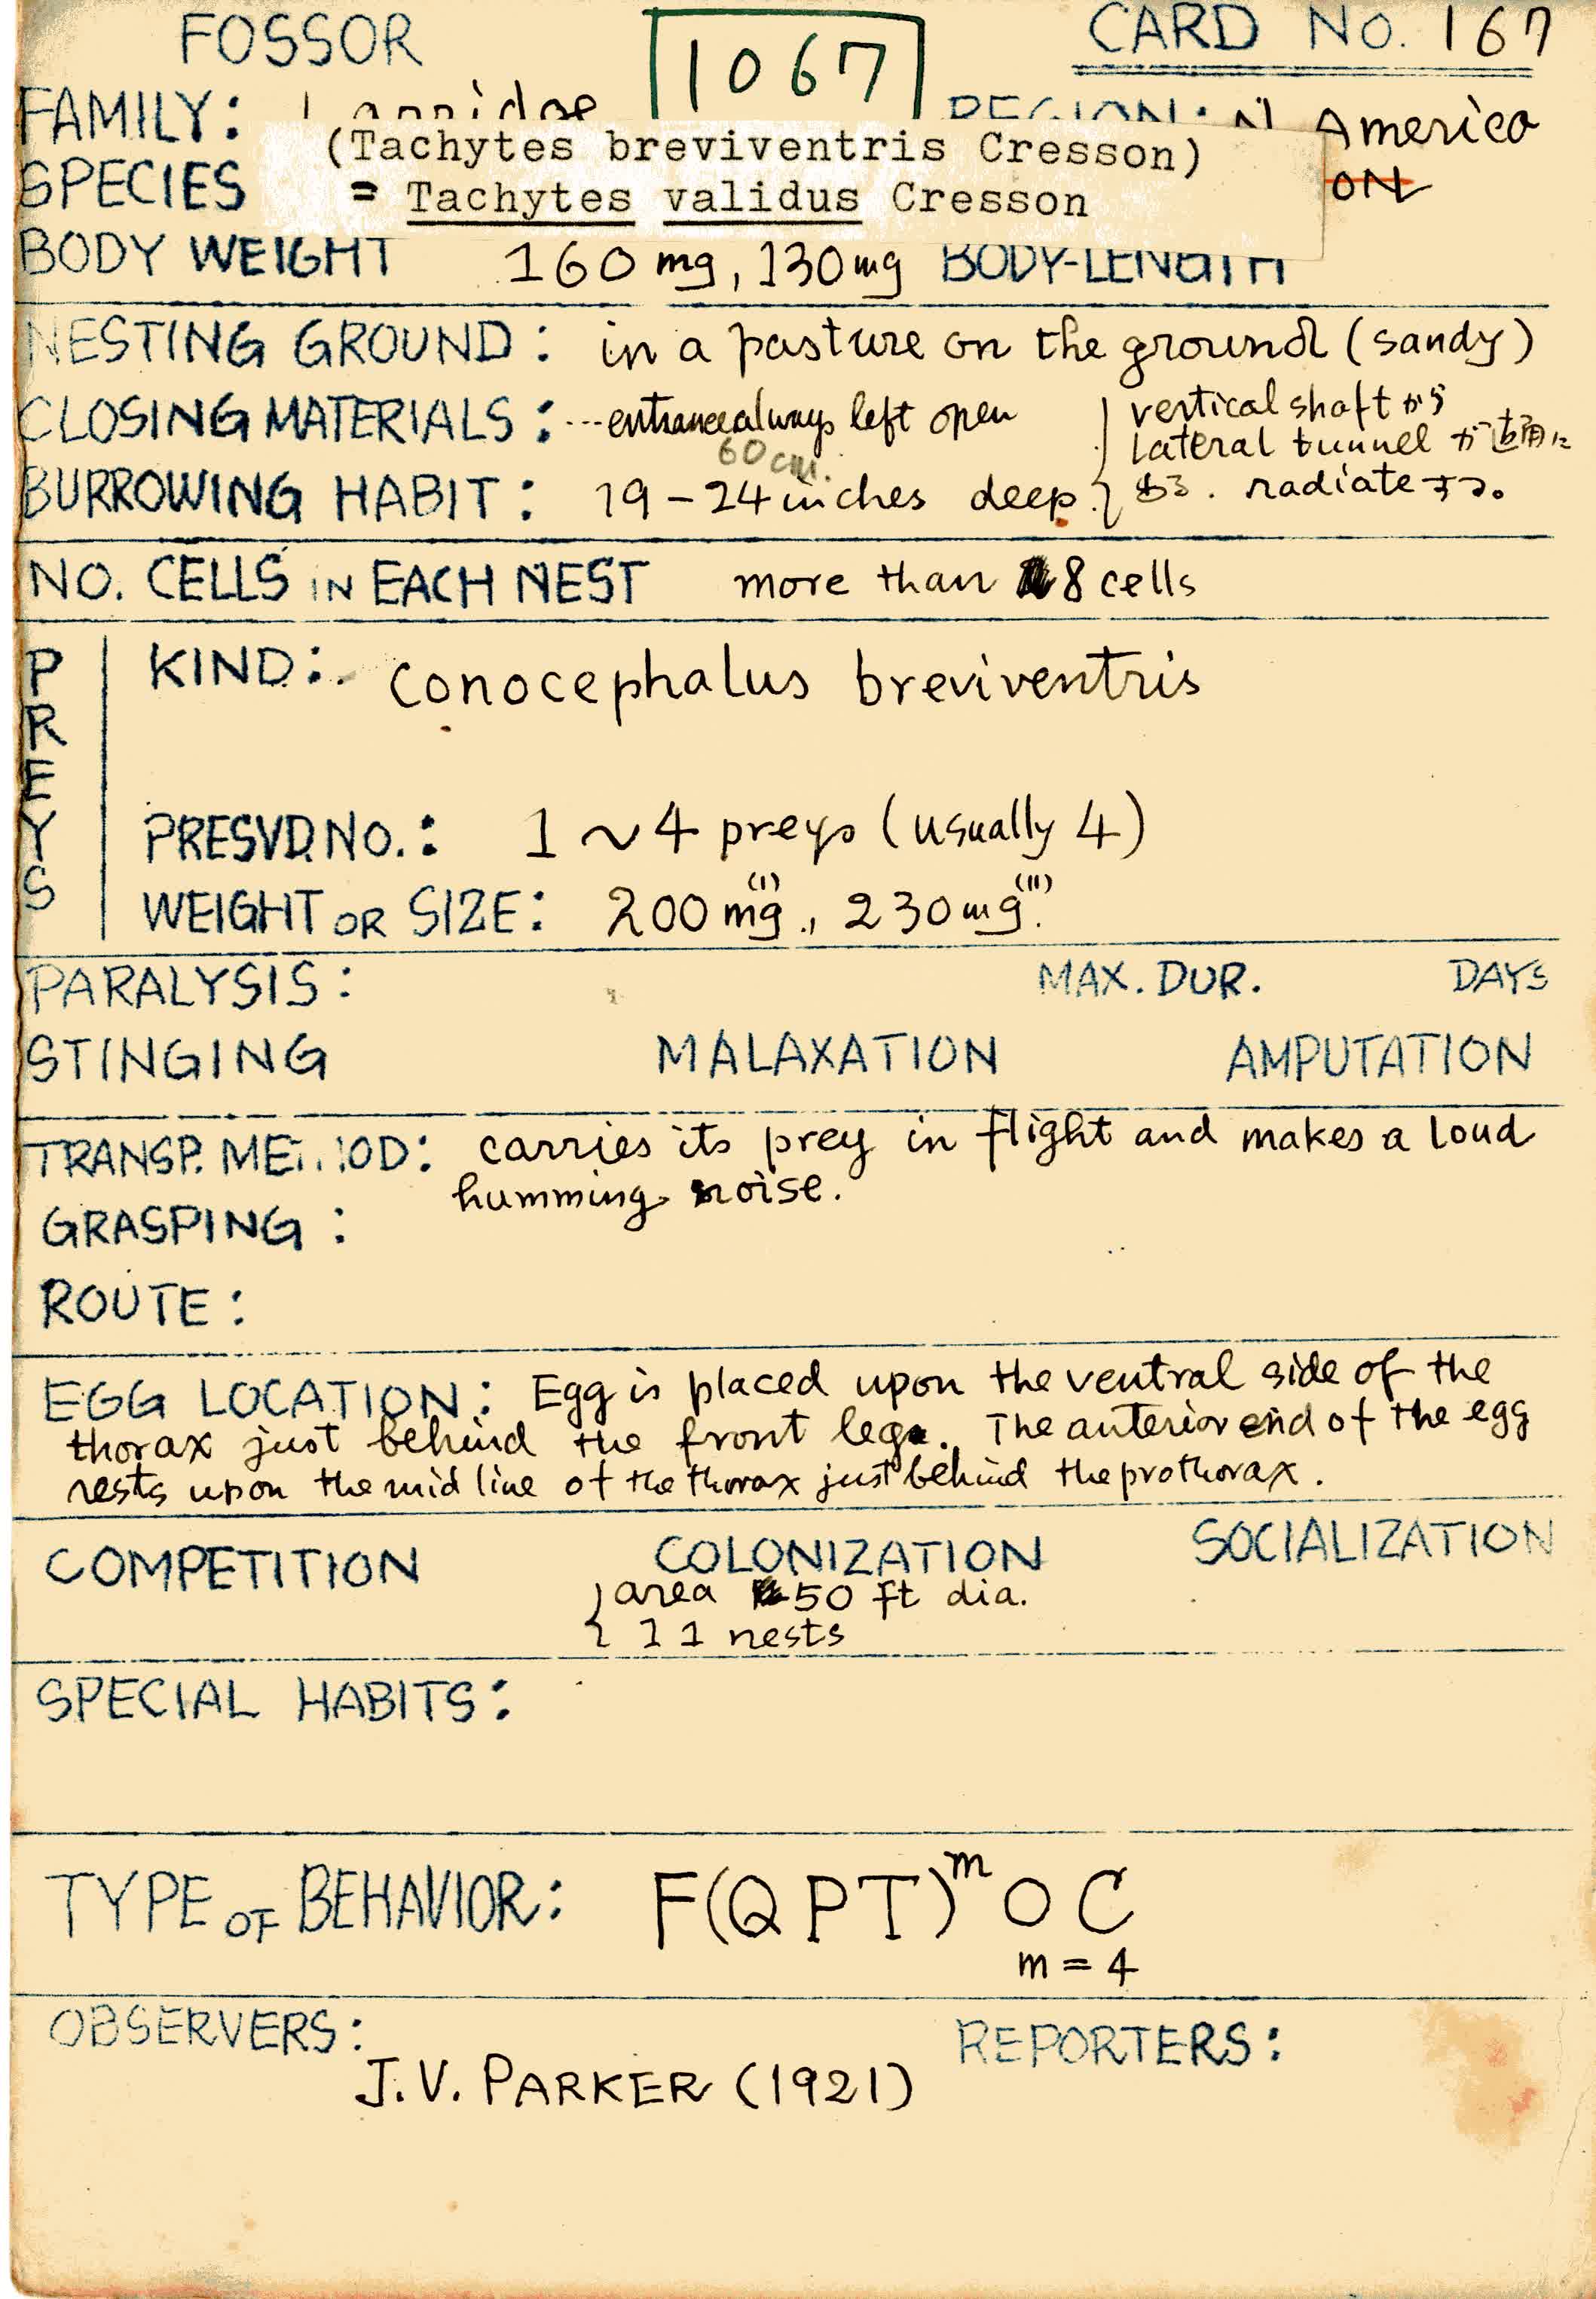 FOSSOR
1067
CARD No. 167
FAMILY: Larridae
REGION: N America
(Tachytes breviventris Cresson)
SPECIES = Tachytes validus Cresson
ON
BODY WEIGHT 160 mg, 130 mg BODY-LENGTH
NESTING GROUND: in a pasture on the ground (sandy)
CLOSING MATERIALS: ...entrance always left open
60 cm.
BURROWING HABIT: 19-24 inches deep.
vertical shaft から
lateral tunnel が
出る. radiate する。
NO. CELLS IN EACH NEST more than 8 cells
PREYS
KIND: Conocephalus breviventris
PRESVD. NO.: 1 ~ 4 preys (usually 4)
WEIGHT OR SIZE: 200 mg (I)., 230 mg (II).
PARALYSIS: MAX. DUR. DAYS
STINGING MALAXATION AMPUTATION
TRANSP. METHOD: carries its prey in flight and makes a loud
humming noise.
GRASPING:
ROUTE:
EGG LOCATION: Egg is placed upon the ventral side of the
thorax just behind the front leg. The anterior end of the egg
rests upon the mid line of the thorax just behind the prothorax.
COMPETITION COLONIZATION SOCIALIZATION
area 50 ft dia.
11 nests
SPECIAL HABITS:
TYPE OF BEHAVIOR: F(QPT)^m O C
m = 4
OBSERVERS: REPORTERS:
J. V. PARKER (1921)